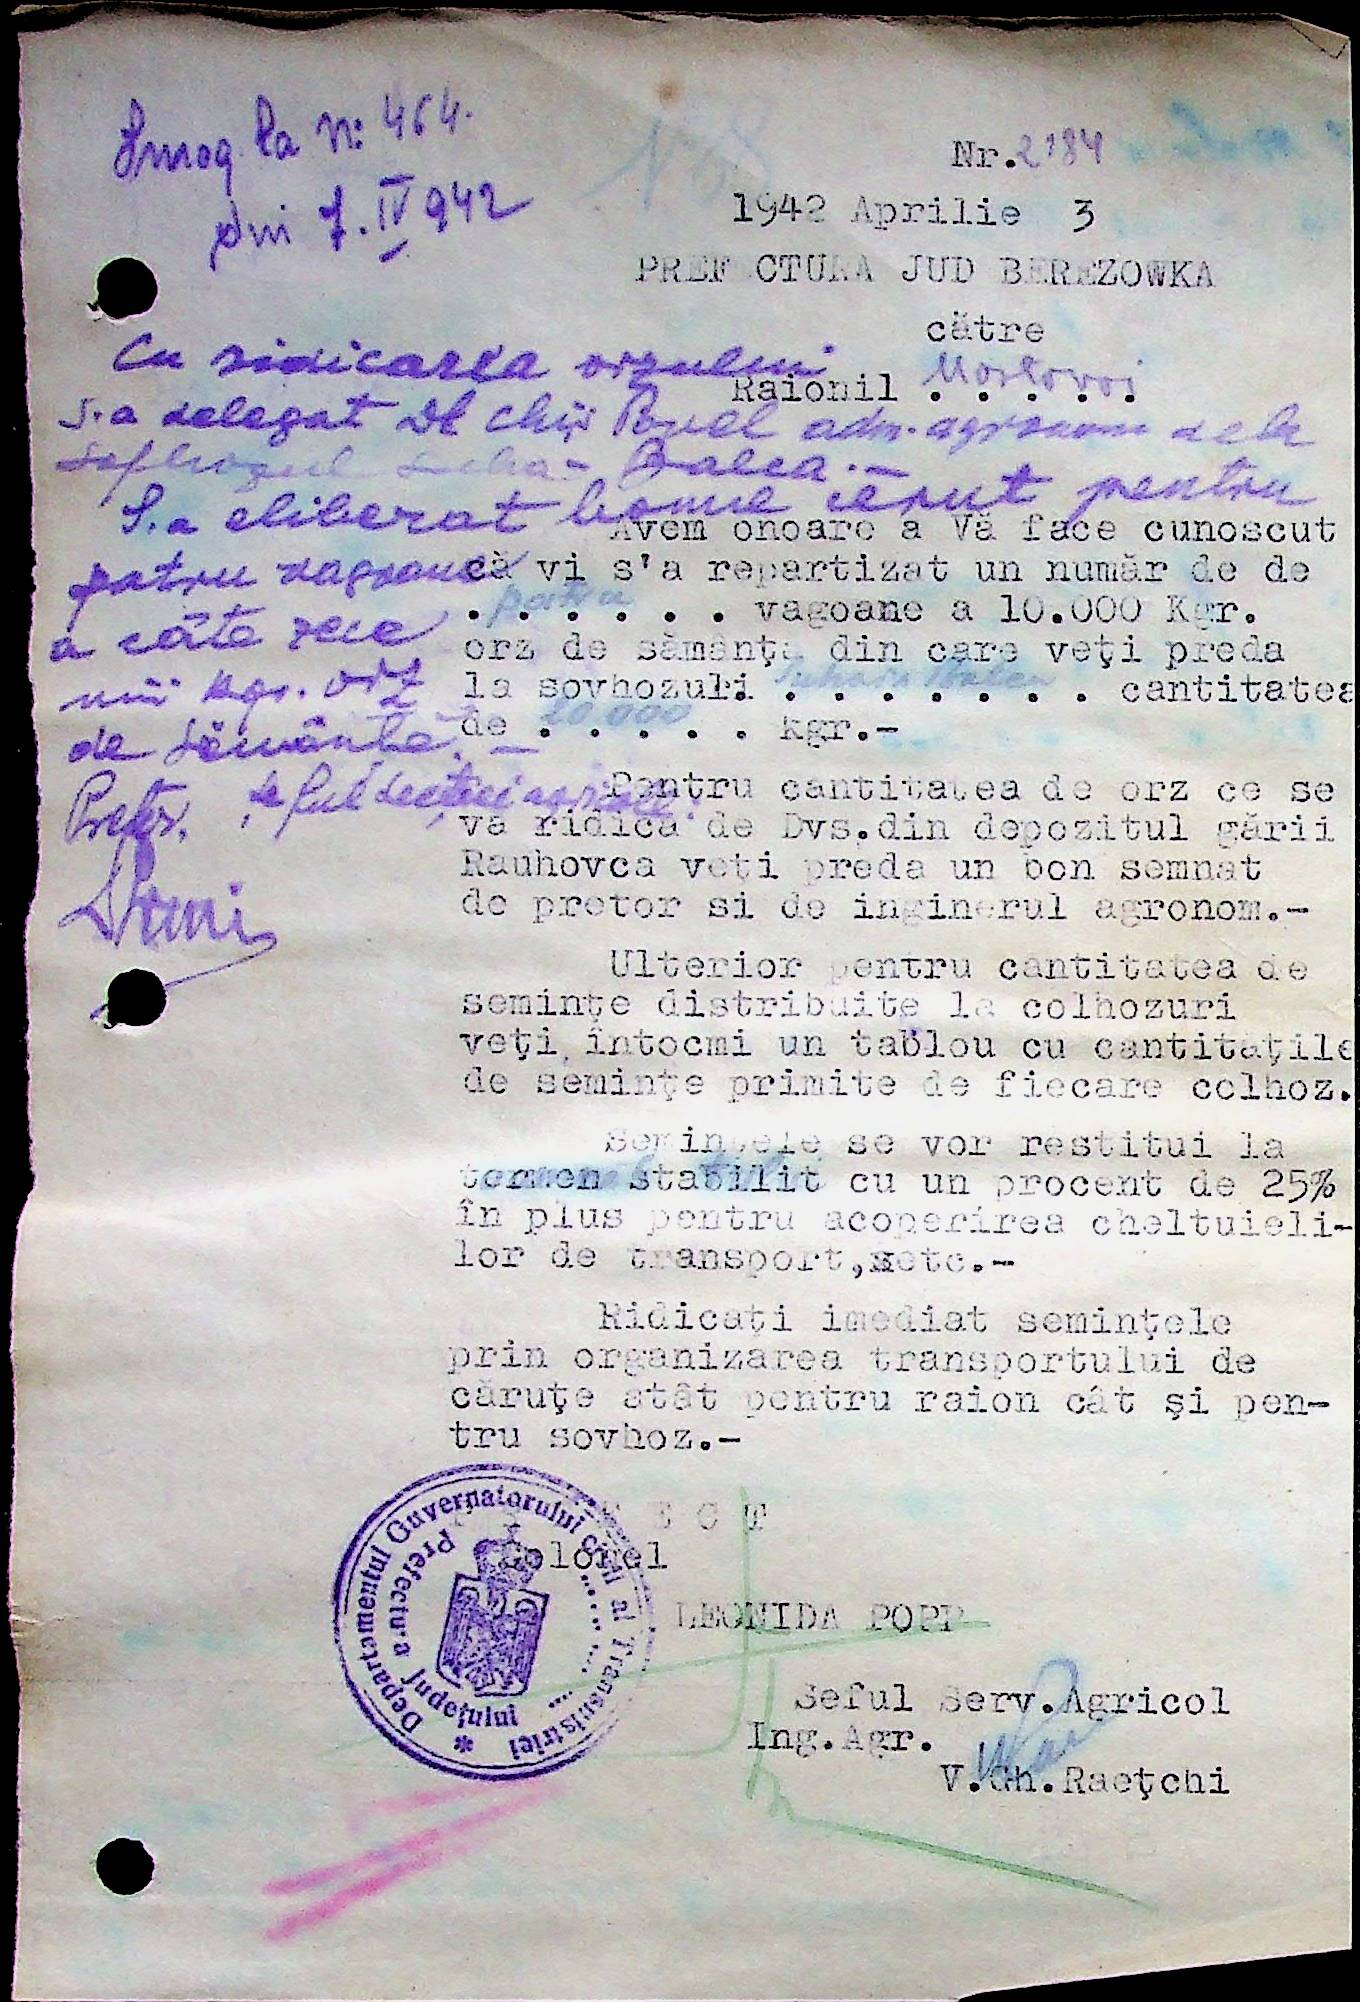 Inreg. la Nr. 464.
din 7. IV 942
Nr. 2184
1942 Aprilie 3
PREFECTURA JUD BEREZOWKA
către
Raionil . . . . . Mostovoi
Cu ridicarea orzului
s-a delegat Dl adm. agronom dela
Balca. -
S-a eliberat bonul cerut pentru
patru vagoane
a câte zece
mii kgr. orz
de sămânță. -
Pretor, Șeful secției agricole:
Avem onoare a Vă face cunoscut
că vi s'a repartizat un număr de de
. patru . . . . . vagoane a 10.000 Kgr.
orz de sămânţa din care veţi preda
la sovhozuri Suhaia Balca . . . . . . . cantitatea
de . 20.000 . . . . kgr.-
Pentru cantitatea de orz ce se
va ridica de Dvs.din depozitul gării
Rauhovca veti preda un bon semnat
de pretor si de inginerul agronom.-
Ulterior pentru cantitatea de
seminţe distribuite la colhozuri
veţi întocmi un tablou cu cantităţile
de seminţe primite de fiecare colhoz.
Seminţele se vor restitui la
termen stabilit cu un procent de 25%
în plus pentru acoperirea cheltuieli-
lor de transport,xetc.-
Ridicaţi imediat seminţele
prin organizarea transportului de
căruţe atât pentru raion cât şi pen-
tru sovhoz.-
PREFECT
Colonel
LEONIDA POPP
Departamentul Guvernatorului civil al Transnistriei
Prefectura Județului
Seful Serv.Agricol
Ing.Agr.
V.Gh.Raeţchi